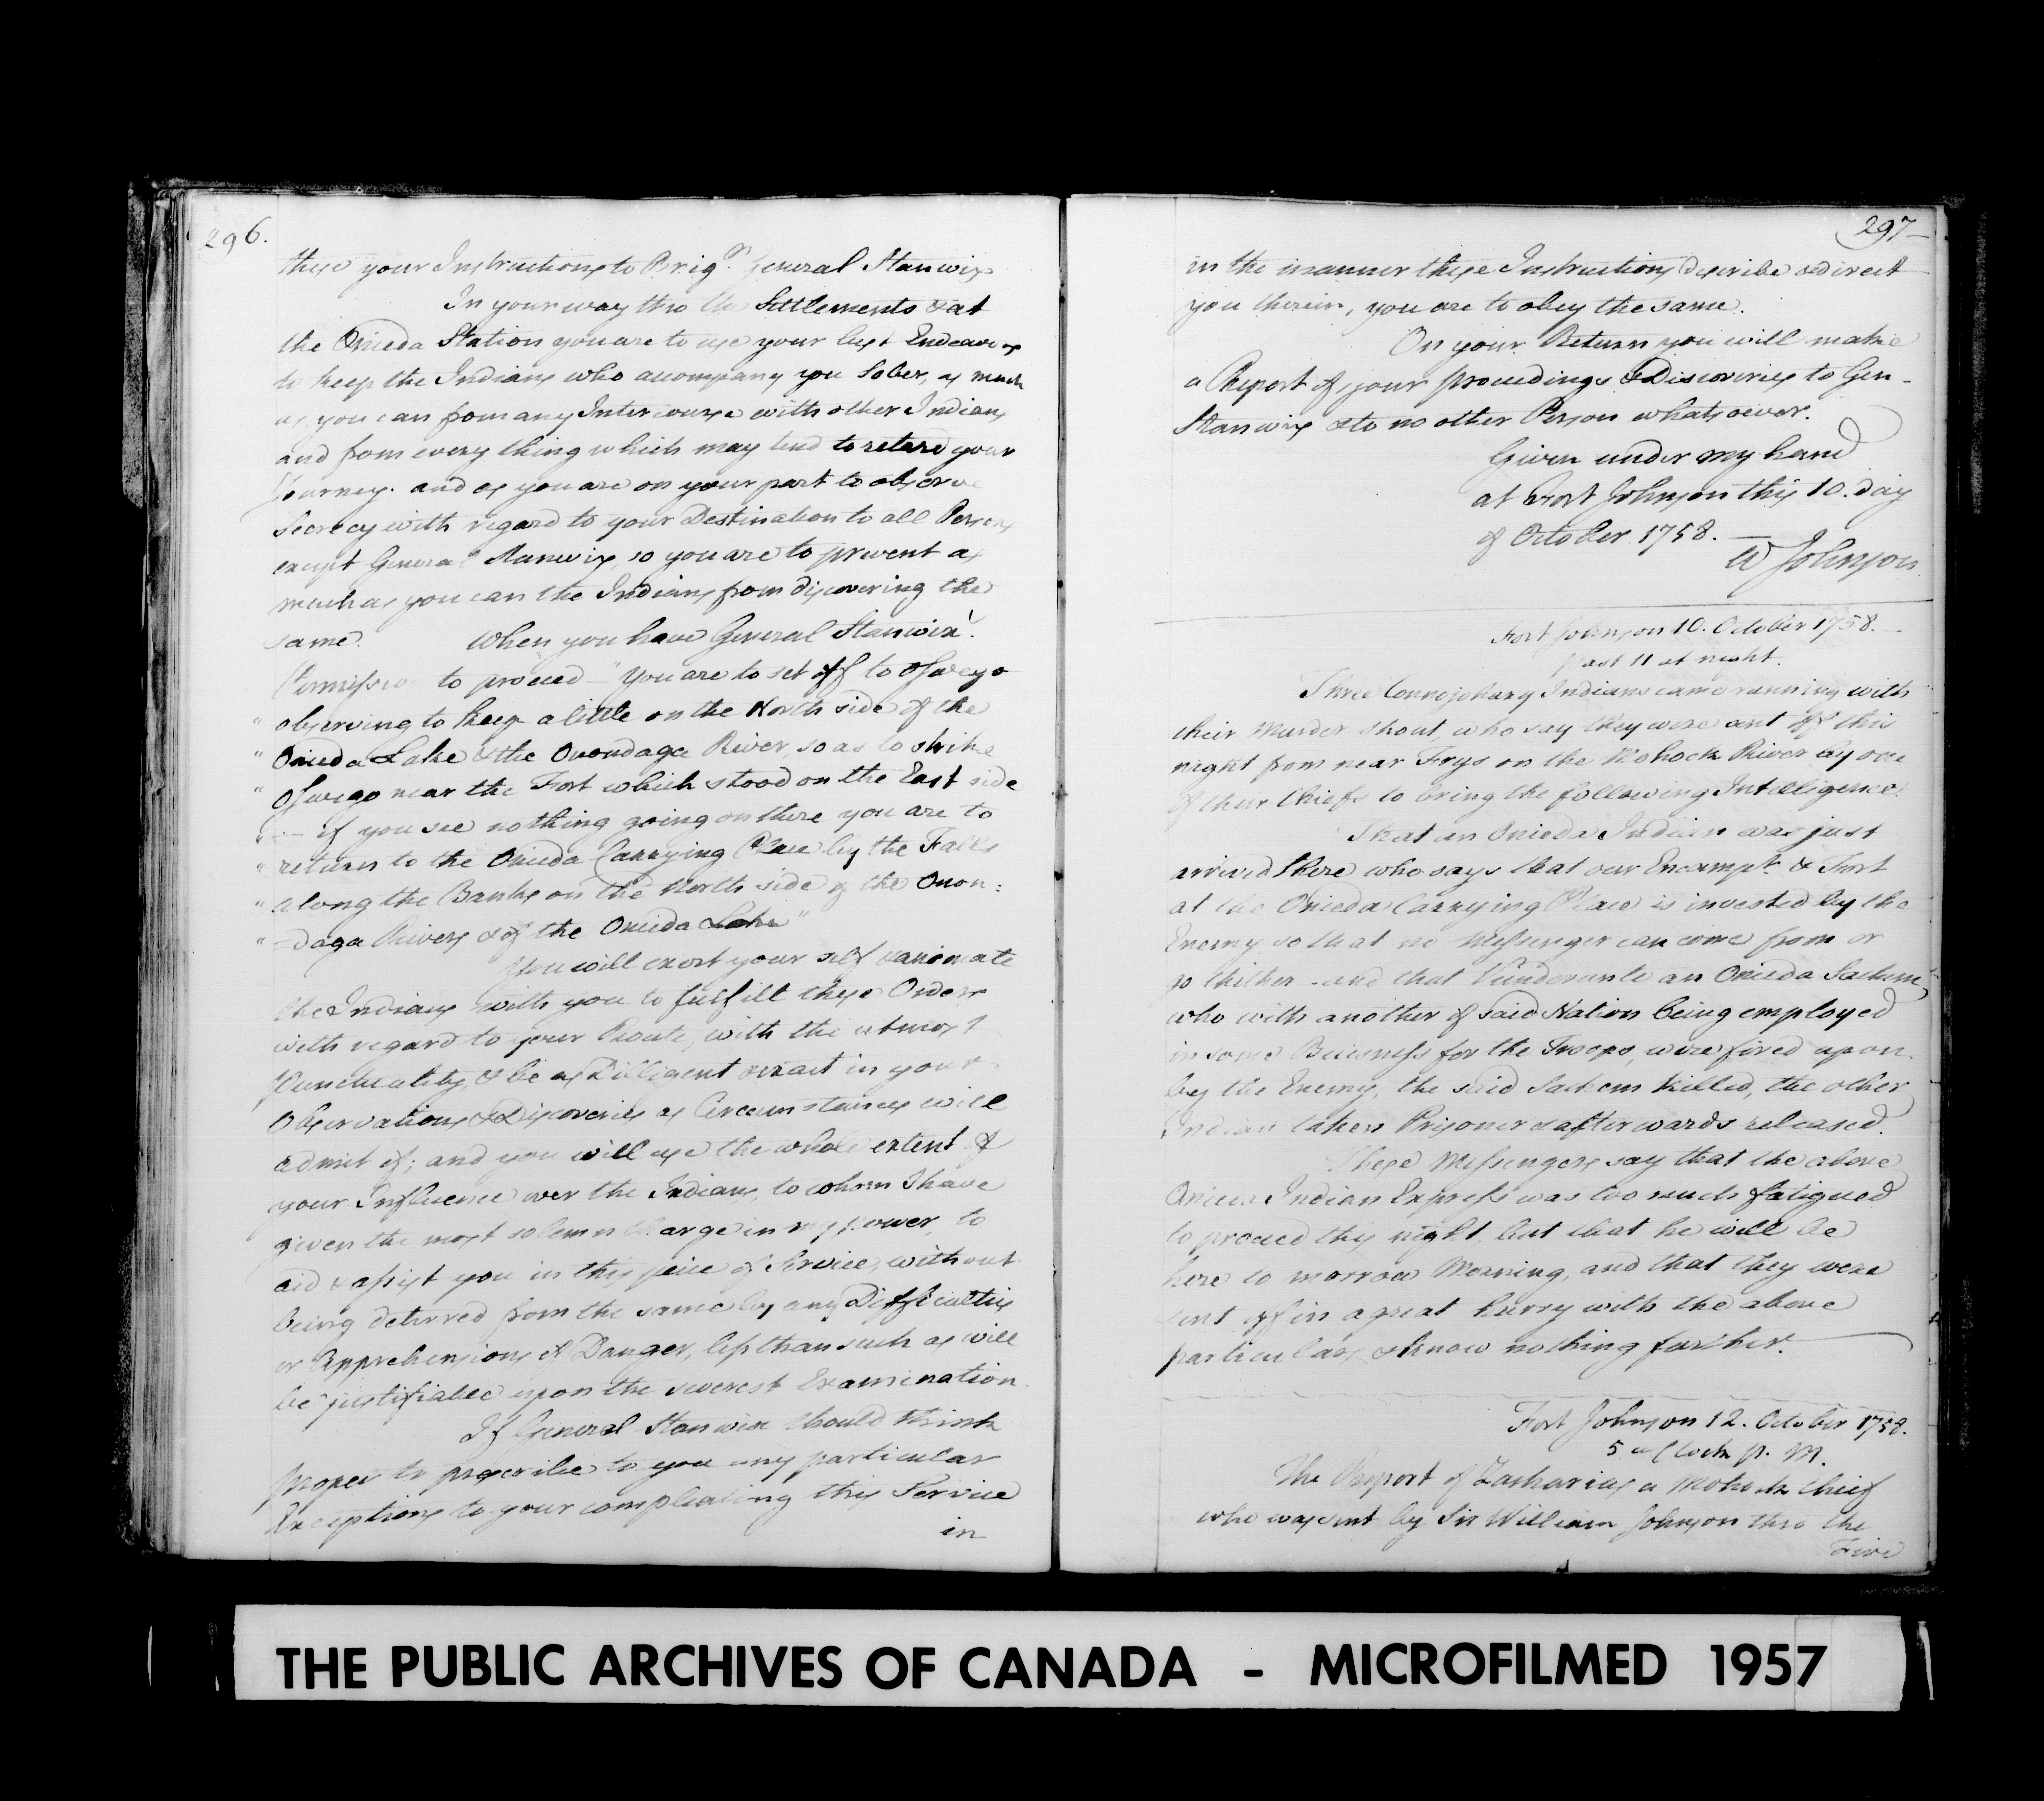 296.
these your Instructions to Brigr. General Stanwix
In your way thro the Settlements & at
the Onieda Station you are to use your best Endeavors
to keep the Indians who accompany you Sober, as much
as you can from any Intercourse with other Indians
and from every thing which may tend to retard your
Journey. and as you are on your part to observe
Secrecy with regard to your Destination to all Persons
except General Stanwix, so you are to prevent as
much as you can the Indians from discovering the
same. When you have General Stanwix'.
Permission to proceed – "You are to set off to Oswego
" observing to keep a little on the North side of the
" Onieda Lake & the Onondaga River so as to strike
" Oswego near the Fort which stood on the East side
" — if you see nothing going on there you are to
" return to the Onieda Carrying Place by the Falls
" along the Banks on the North side of the Onon:
" =daga Rivers & of the Onieda Lake"
You will exert your self & animate
the Indians with you to fulfill these Orders
with regard to your Route, with the utmost
Punctuality, & be as Dilligent & exact in your
Observations & Discoveries as Circumstances will
admit of; and you will use the whole extent of
your Influence over the Indians, to whom I have
given the most solemn Charge in my power, to
aid & assist you in this peice of Service, without
being deterred from the same by any Difficulties
or Apprehensions of Danger, less than such as will
be justifiable upon the severest Examination.
If General Stanwix should think
proper to prescribe to you any particular
Exceptions to your compleating this Service
in
297
in the manner these Instructions describe & direct
you therein, you are to obey the same.
On your Return you will make
a Report of your proceedings & Discoveries to Gen-
Stanwix & to no other Person whatsoever.
Given under my hand
at Fort Johnson this 10. day
of October 1758. —
W Johnson
Fort Johnson 10. October 1758. —
past 11 at night.
Three Connojohary Indians came running with
their Murder shout, who say they were sent off this
night from near Frys on the Mohock River by one
of their Chiefs to bring the following Intelligence.
That an Onieda Indian was just
arrived there who says that our Encampt. & Fort
at the Onieda Carrying Place is invested by the
Enemy so that no Messenger can come from or
go thither – and that an Onieda Sachem,
who with another of said Nation being employed
in some Buisness for the Troops, were fired upon
by the Enemy, the said Sachem killed, the other
Indian taken Prisoner & afterwards released.
These Messengers say that the above
Onieda Indian Express was too much fatigued
to proceed this night, but that he will be
here to morrow Morning, and that they were
sent off in a great hurry with the above
particulars & know nothing further.
Fort Johnson 12. October 1758.
5 o Clock p. M.
The Report of Zacharias a Mohock Chief
who was sent by Sir William Johnson thro the
Five
THE PUBLIC ARCHIVES OF CANADA - MICROFILMED 1957